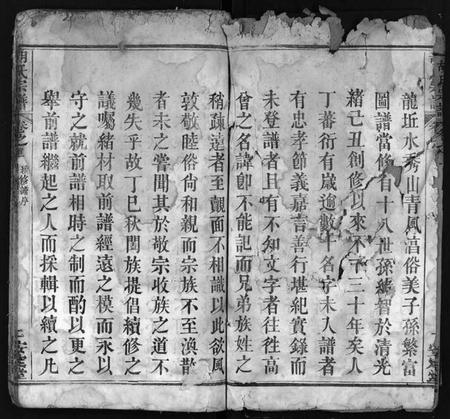 龍坵水秀山青風高俗美子孫繁富
圖譜當修自十八世孫緒智於清光
緒己丑創修以來不下三十年矣人
丁蕃衍有歲逾數十名字未入譜者
有忠孝節義嘉言善行堪紀實錄而
未登譜者且有不知文字者往徃高
曾之名諱卽不能記而兄弟族姓之
稍疎遠者至覿面不相識以此欲風
敦敬睦俗尙和親而宗族不至渙散
者未之嘗聞其於敬宗收族之道不
幾失乎故丁巳秋闔族提倡續修之
議囑緒材取前譜經遠之模而永以
守之就前譜相時之制而酌以更之
舉前譜繼起之人而採輯以續之凡
氏宗譜
卷之
續修譜序